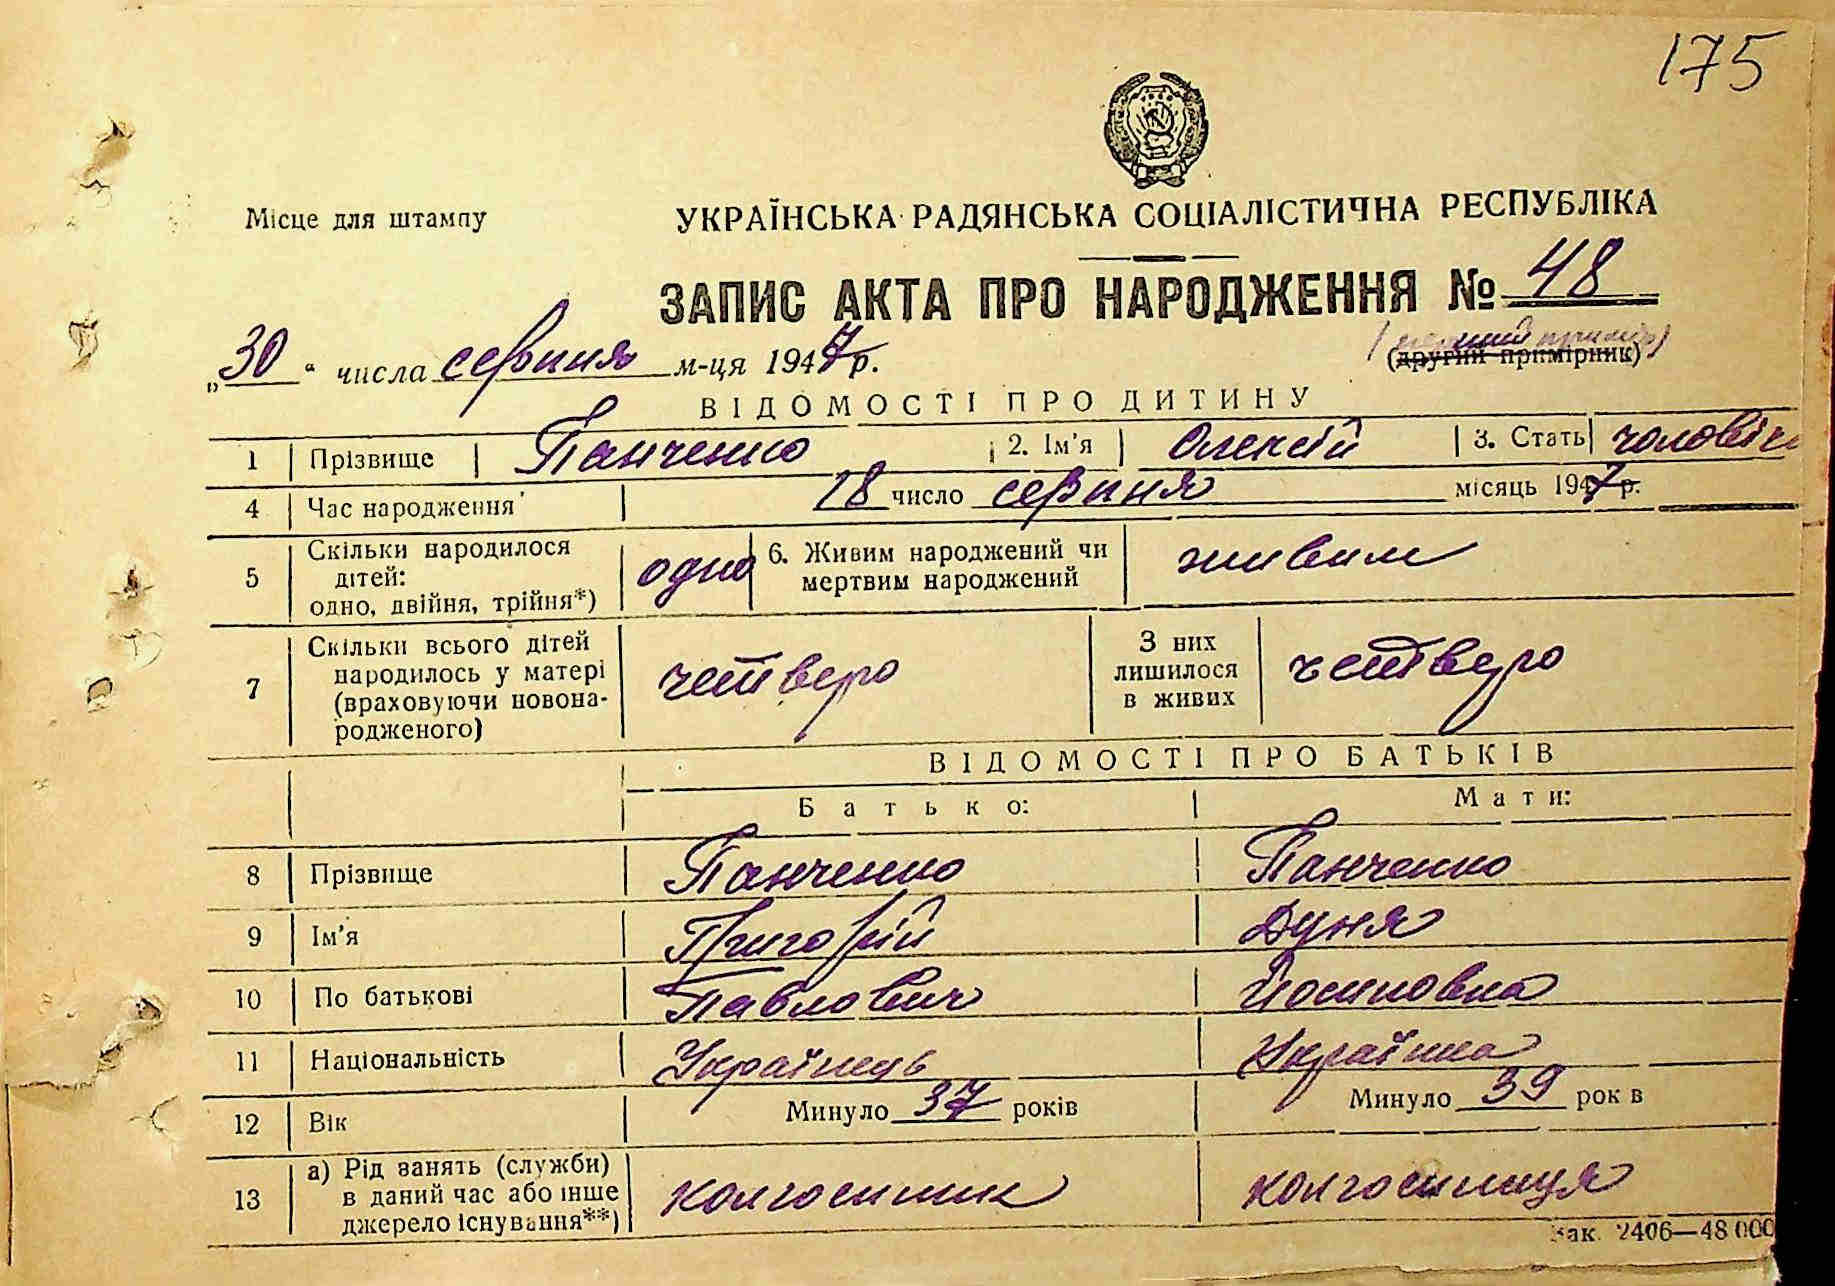 175
Місце для штампу
УКРАЇНСЬКА РАДЯНСЬКА СОЦІАЛІСТИЧНА РЕСПУБЛІКА
ЗАПИС АКТА ПРО НАРОДЖЕННЯ № 48
(перший примір)
(другий примірник)
„30“ числа серпня м-ця 1947 р.
ВІДОМОСТІ ПРО ДИТИНУ
1 Прізвище Панченко 2. Ім'я Олексій 3. Стать чоловіч
4 Час народження 18 число серпня місяць 1947 р.
5 Скільки народилося дітей: одно, двійня, трійня*) одно 6. Живим народжений чи мертвим народжений живим
7 Скільки всього дітей народилось у матері (враховуючи новонародженого) четверо З них лишилося в живих четверо
ВІДОМОСТІ ПРО БАТЬКІВ
Батько: Мати:
8 Прізвище Панченко Панченко
9 Ім'я Григорій Дуня
10 По батькові Павлович Йосиповна
11 Національність Українець Українка
12 Вік Минуло 37 років Минуло 39 рок в
13 а) Рід занять (служби) в даний час або інше джерело існування**) колгоспник колгоспниця
Зак. 2406—48 000